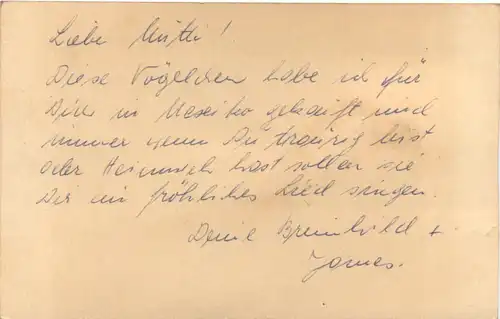 Liebe Mutti!
Diese Vögelchen habe ich für
Dich in Mexiko gekauft und
immer wenn Du traurig bist
oder Heimweh hast sollen sie
Dir ein fröhliches Lied singen.
Deine Brunhild +
James.